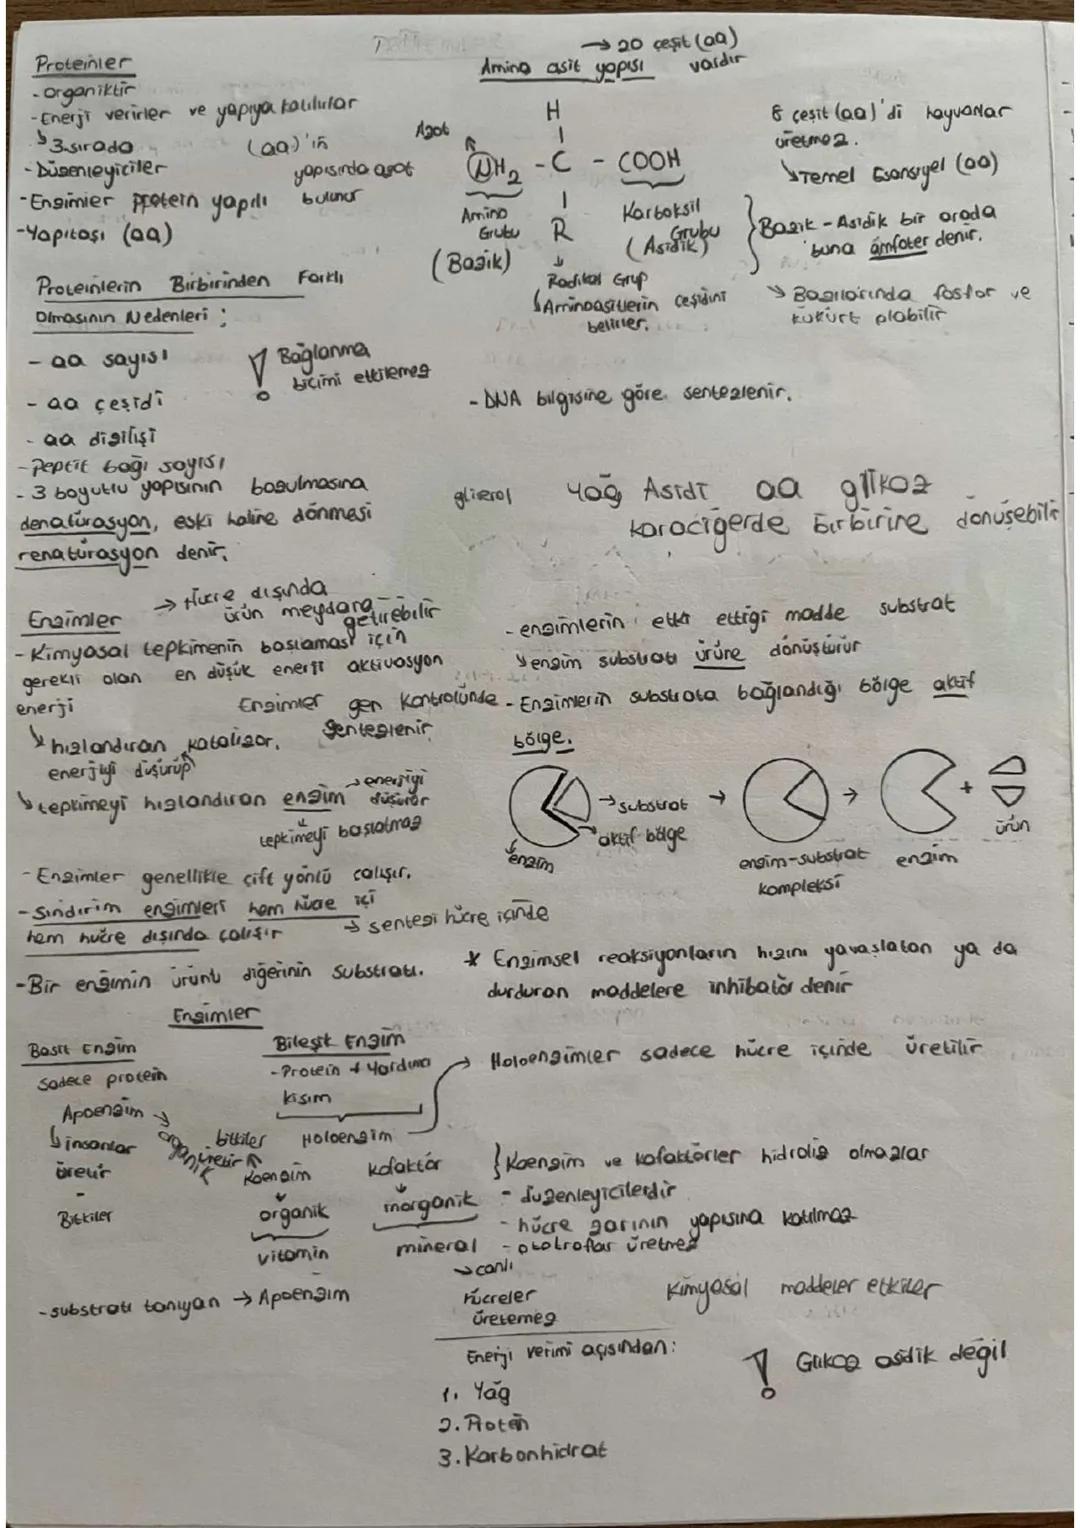 Proteinler
- organiktir
- Enerji verirler ve yapıya katılırlar
↳ 3.sırada
(aa)'in yapısında azot bulunur
- Düzenleyiciler
- Enzimler protein yapılı
- Yapıtaşı (aa)
→ 20 çeşit (aa) vardır
Amino asit yapısı
H
Azot
NH2 - C - COOH
R
Amino Grubu
(Bazik)
Karboksil Grubu
(Asidik)
Radikal Grup
↳ Aminoasitlerin çeşidini
belirler.
8 çeşit (aa)'di hayvanlar
üretmez.
↳ Temel Esansiyel (aa)
} Bazik - Asidik bir arada
buna amfoter denir.
→ Bazılarında fosfor ve
kükürt olabilir
Proteinlerin Birbirinden Farklı
Olmasının Nedenleri :
- aa sayısı
- aa çeşidi
- aa dizilişi
- Peptit bağı sayısı
! Bağlanma
biçimi etkilemez
- DNA bilgisine göre sentezlenir.
- 3 boyutlu yapısının bozulmasına
denatürasyon, eski haline dönmesi
renatürasyon denir.
gliserol Yağ Asidi aa glikoz
karaciğerde birbirine dönüşebilir
Enzimler
→ Hücre dışında
ürün meydana getirebilir
- Kimyasal tepkimenin başlaması için
gerekli olan en düşük enerji aktivasyon
enerji
Enzimler gen kontrolünde
sentezlenir
↳ hızlandıran katalizör.
enerjiyi düşürüp
↳ tepkimeyi hızlandıran enzim → enerjiyi düşürür
tepkimeyi başlatmaz
- Enzimler genellikle çift yönlü çalışır.
- Sindirim enzimleri hem hücre içi
hem hücre dışında çalışır
→ sentezi hücre içinde
- Bir enzimin ürünü diğerinin substratı.
- enzimlerin etki ettiği madde substrat
↳ enzim substratı ürüne dönüştürür
- Enzimlerin substrata bağlandığı bölge aktif
bölge.
→ substrat
→ aktif bölge
enzim
→
enzim-substrat
kompleksi
→
enzim
+
ürün
* Enzimsel reaksiyonların hızını yavaşlatan ya da
durduran maddelere inhibatör denir
Enzimler
Basit Enzim
Sadece protein
Apoenzim
↳ insanlar
üretir
-
Bitkiler
Bileşik Enzim
- Protein + Yardımcı
kısım
Holoenzim
→ Holoenzimler sadece hücre içinde üretilir
organik
bitkiler
üretir
Koenzim
organik
vitamin
kofaktör
inorganik
mineral
} Koenzim ve kofaktörler hidroliz olmazlar
- düzenleyicilerdir
- hücre zarının yapısına katılmaz
- ototroflar üretmez
→ canlı
hücreler
üretemez
- substratı tanıyan → Apoenzim
Kimyasal maddeler etkiler
Enerji verimi açısından:
1. Yağ
2. Protein
3. Karbonhidrat
! Glikoz asidik değil